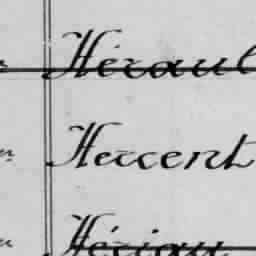 Héraul
Hercent
Hérian